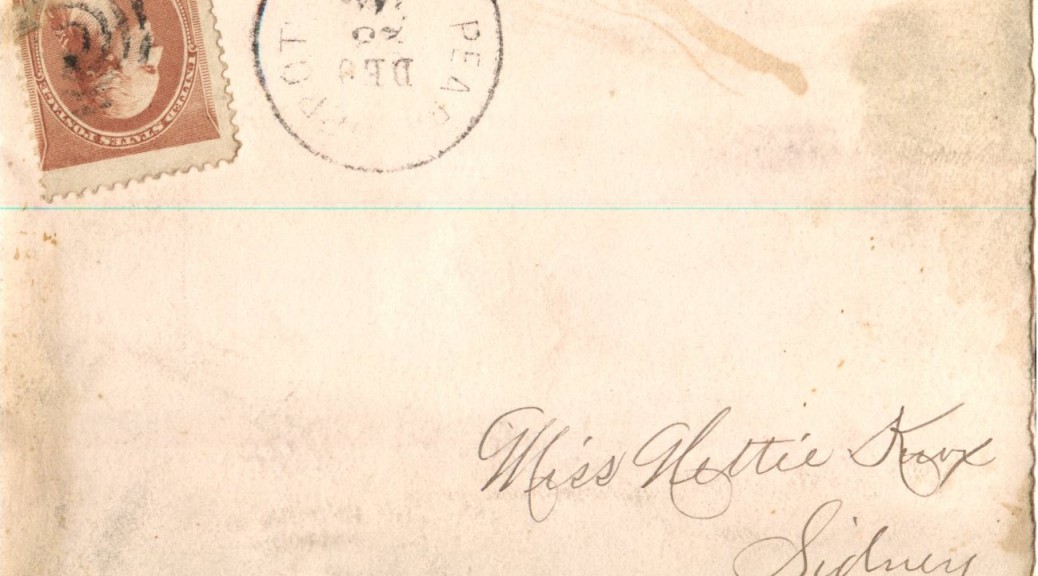 UNITED STATES POSTAGE
PEA
DEC
Miss Nettie Knox
Sidney